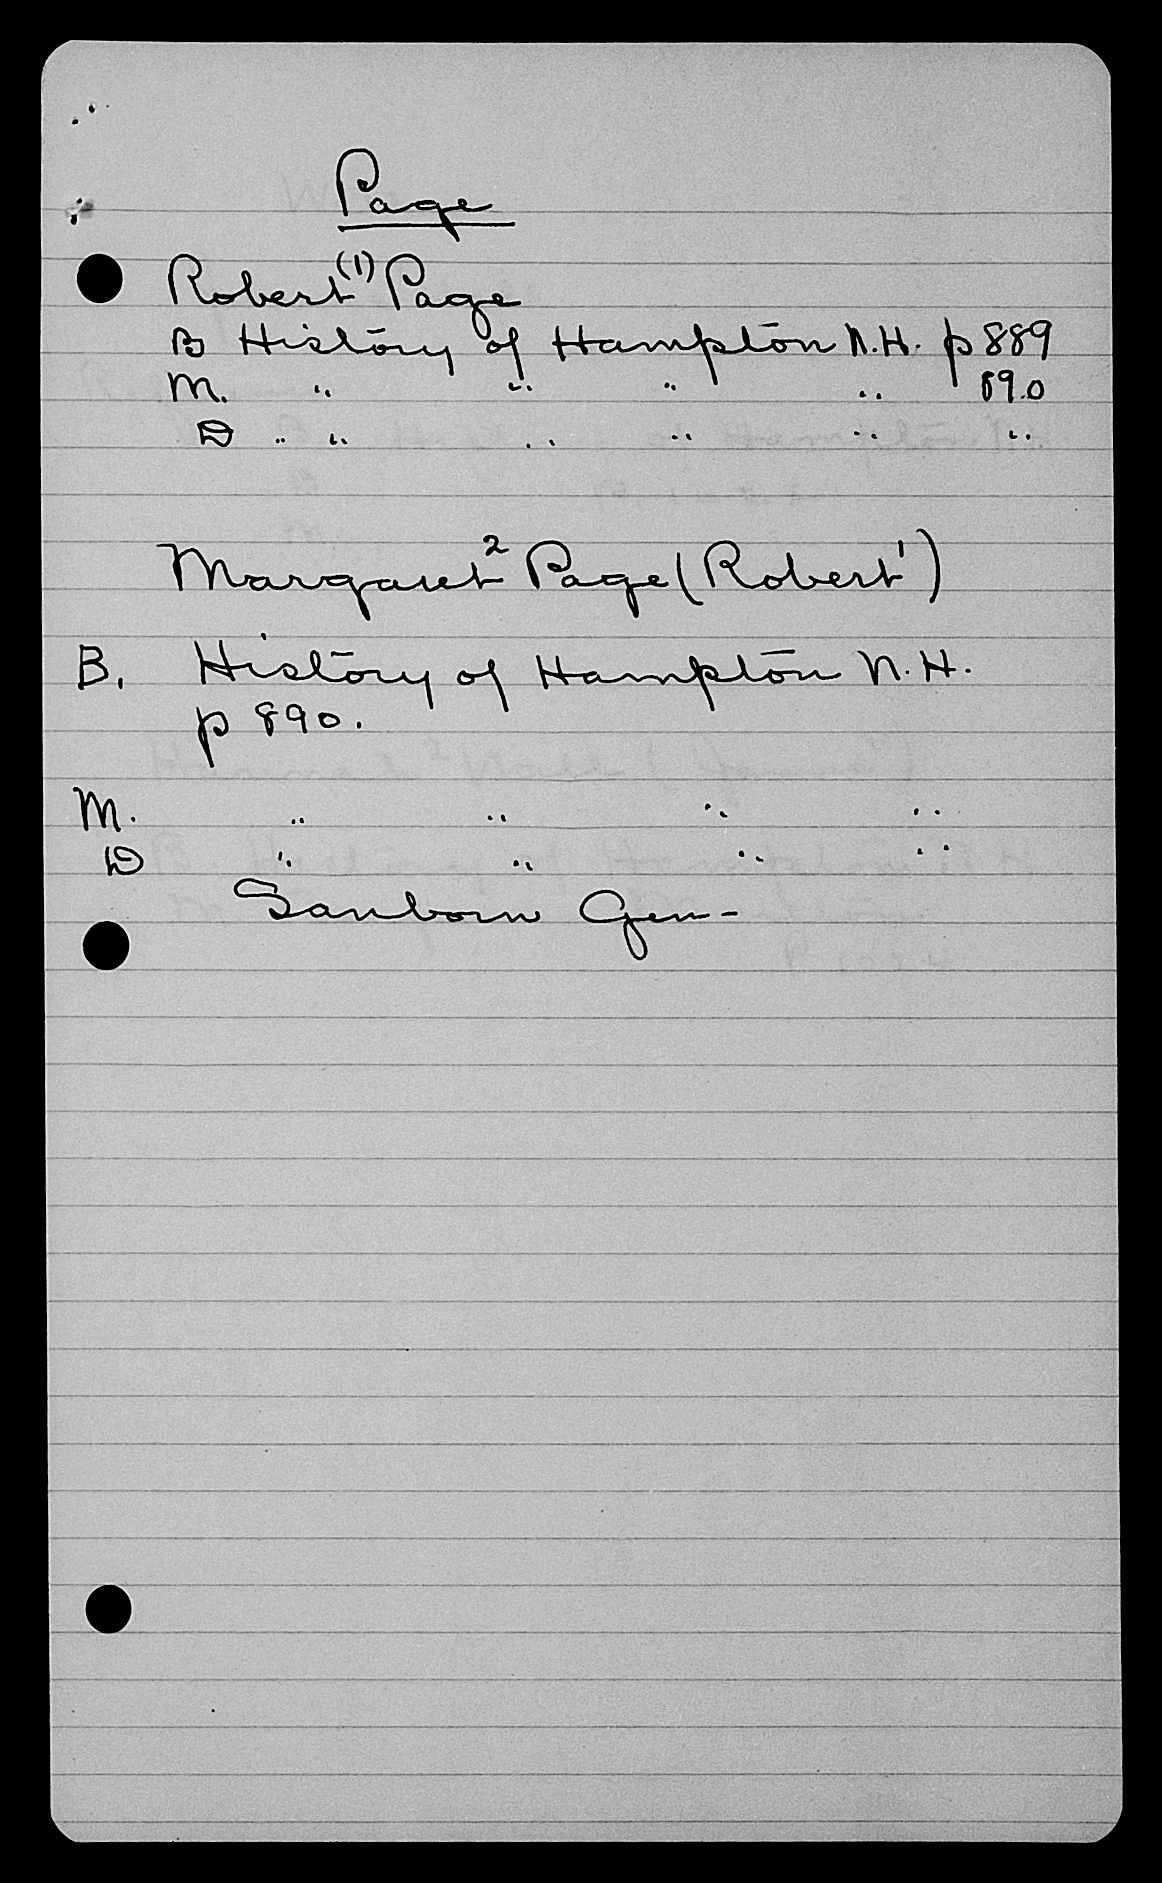 Page
Robert (1) Page
B History of Hampton N.H. p 889
M. " " " " 890
D " " " " " "
Margaret 2 Page (Robert 1)
B. History of Hampton N.H.
p 890.
M. " " " "
D " " " "
Sanborn Gen-